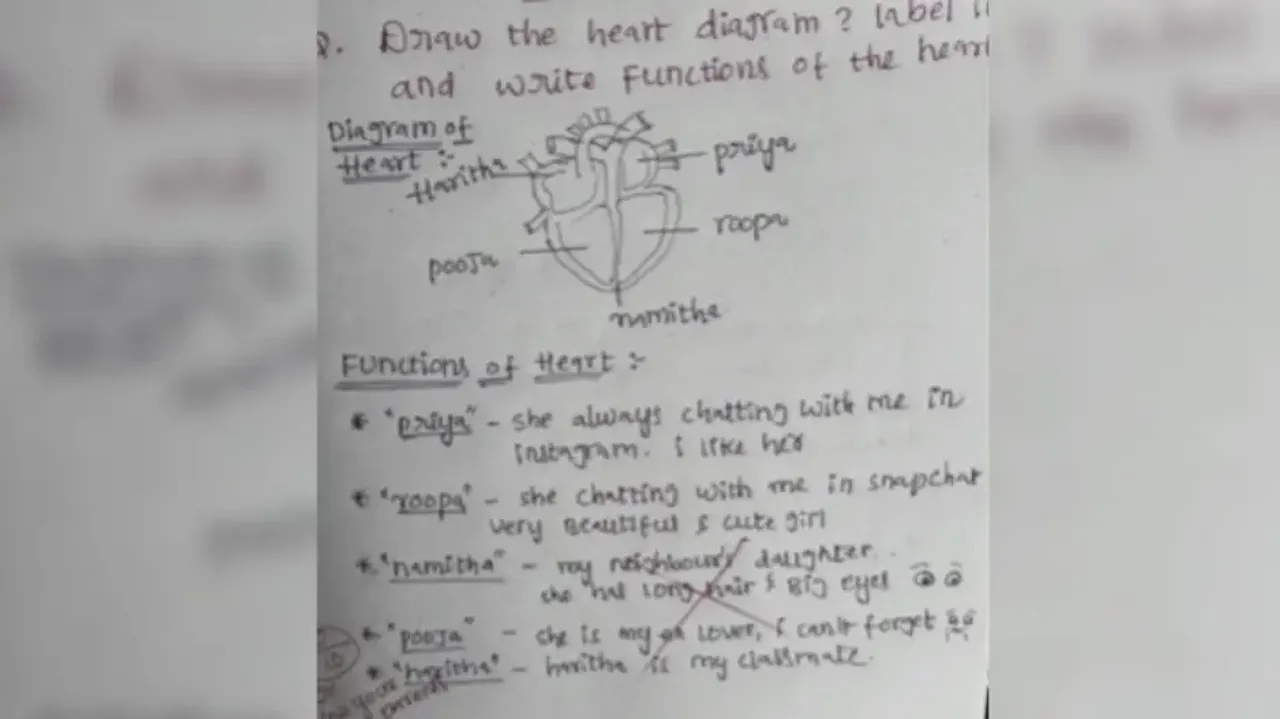 Q. Draw the heart diagram? label i
and write Functions of the hear
Diagram of
Heart :-
Haritha
priya
roopa
pooja
namitha
Functions of Heart :-
* "priya" - she always chatting with me in
instagram. i like her
* "roopa" - she chatting with me in snapchat
very Beautiful & cute girl
* "namitha" - my neighbour's daughter..
she has long hair & Big eyes
* "pooja" - she is my lover, i can't forget
* "haritha" - haritha is my classmate.
10
your
parents